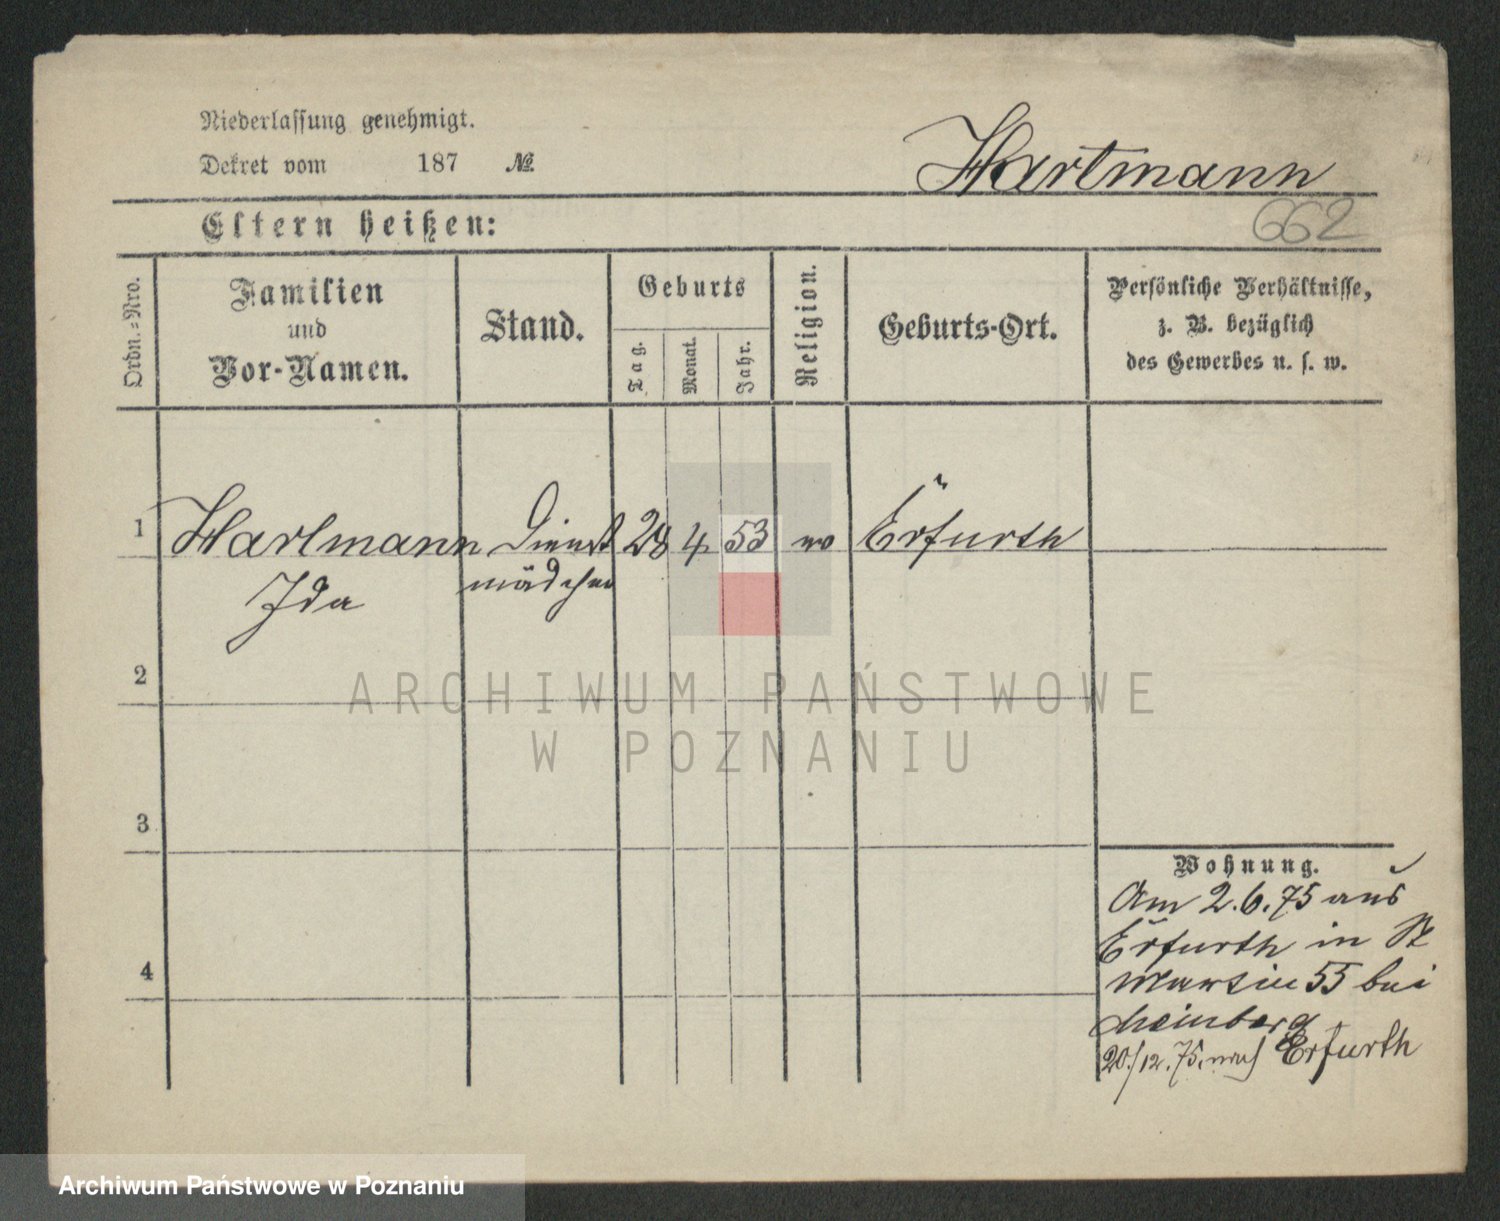 Niederlassung genehmigt.
Dekret vom 187 №
Hartmann
662
Eltern heißen:
Ordn.-Nro.
Familien
und
Vor-Namen.
Stand.
Geburts
Tag.
Monat.
Jahr.
Religion.
Geburts-Ort.
Persönliche Verhältnisse,
z. B. bezüglich
des Gewerbes u. s. w.
1 Hartmann Dienst 28 4 53 Erfurth
Ida mädchen
2
3
4
ARCHIWUM PAŃSTWOWE
W POZNANIU
Wohnung.
Am 2.6.75 aus
Erfurth in St
Martin 55 bei
20/12.75. nach Erfurth
Archiwum Państwowe w Poznaniu